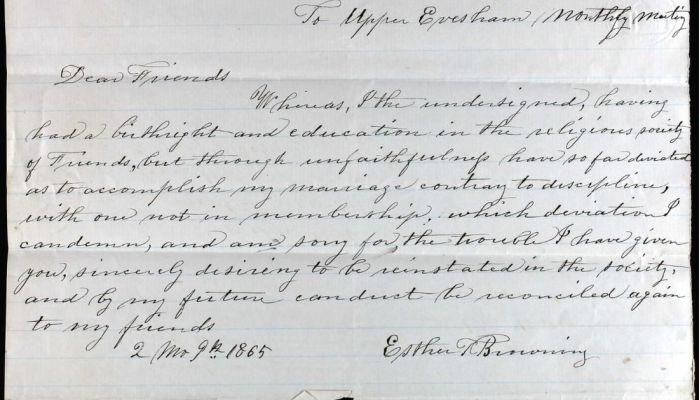 To Upper Evesham Monthly Meeting
Dear Friends
Whereas, I the undersigned, having
had a birthright and education in the religious society
of Friends, but through unfaithfulness have so far deviated
as to accomplish my marriage contray to discipline,
with one not in membership. which deviation I
candemn, and am sory for the trouble I have given
you, sincerely desireing to be reinstated in the society,
and by my future conduct be reconciled again
to my friends
2 Mo 9th 1865 Esther T Browning